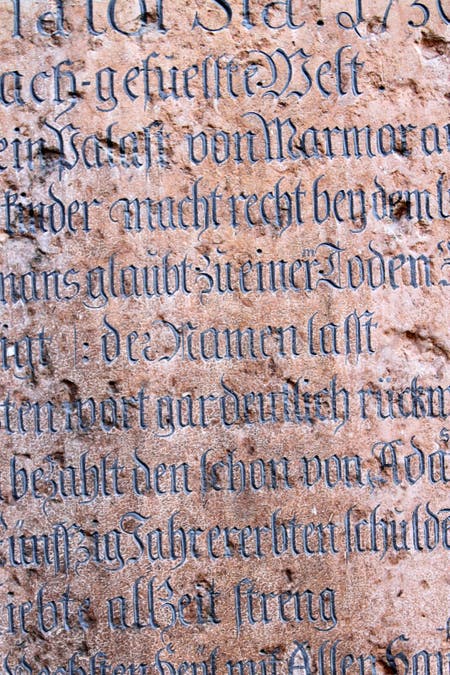 ach-gefuellte Welt
ein Palast von Marmar a
kinder macht recht bey dem
mans glaubt zu einer Toden
igt /: der Namen lasst
ten wort gar deutlich rückw
bezahlt den schon von Ada
fünffzig Jahr ererbten schulde
iebte all Zeit streng
mit Allen